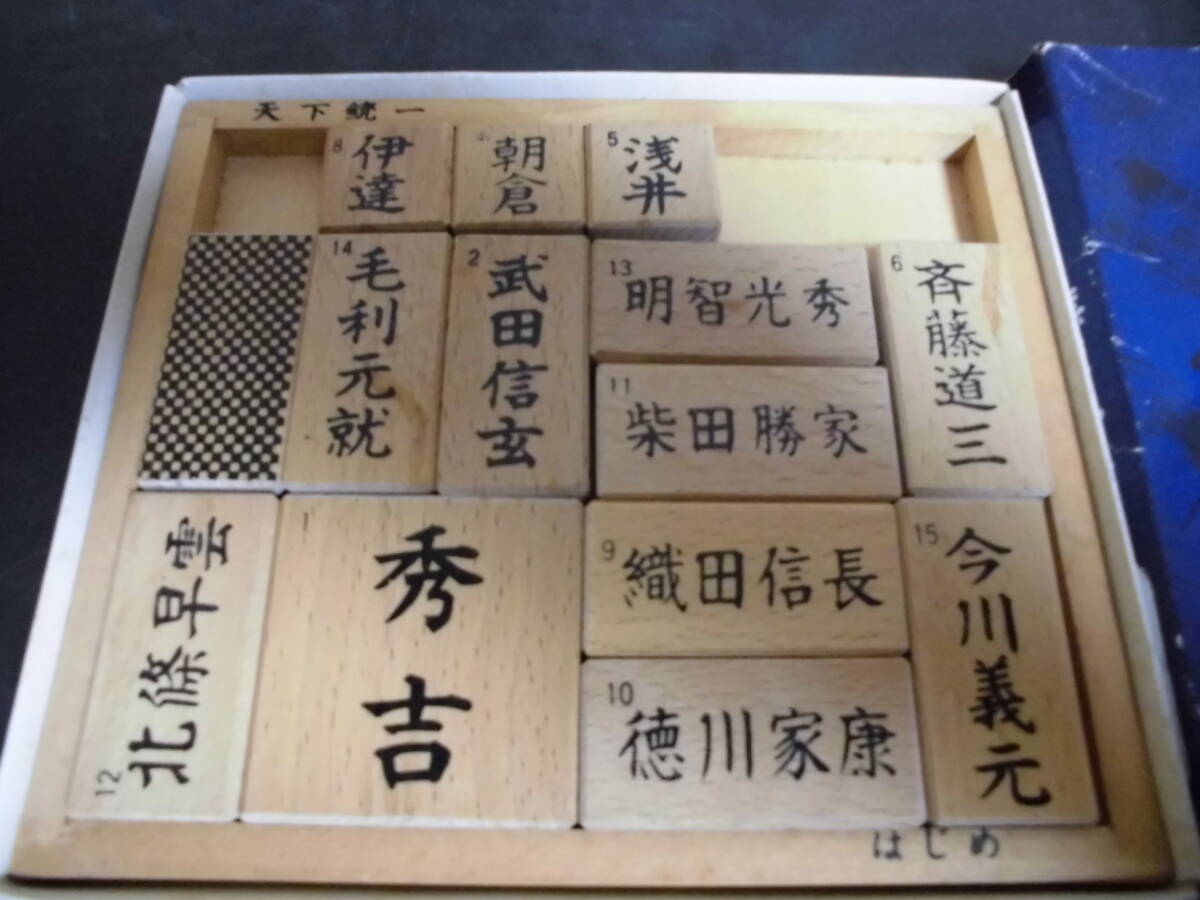 天下統一
8 伊達
4 朝倉
5 浅井
14 毛利元就
2 武田信玄
13 明智光秀
6 斉藤道三
11 柴田勝家
12 北條早雲
秀吉
9 織田信長
15 今川義元
10 徳川家康
はじめ